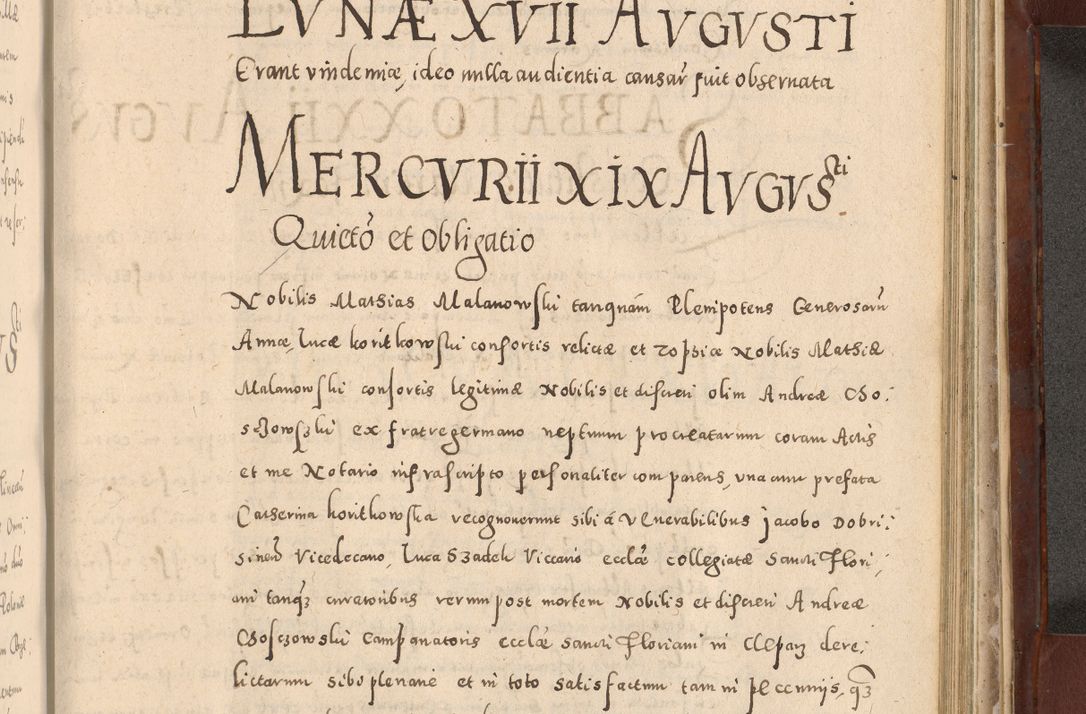 LVNÆ XVII AVGVSTI
Erant vindemiæ, ideo nulla audientia causar̃ fuit obseruata
MERCVRII XIX AVGVSti
Quietõ et Obligatio
Nobilis Mathias Malanowski tanquam Plenipotens Generosarũ
Annæ, Lucæ koritkowski consortis relictæ et Zophiæ Nobilis Mathiæ
Malanowski consortis legitimæ Nobilis et discreti olim Andreæ Cho⸗
schowski ex fratre germano neptuum procreatarum coram Actis
et me Notario infrascripto personaliter comparens, vna cum prefata
Catherina koritkowska recognouerunt sibi á Venerabilibus Jacobo Dobri⸗
Vicedecano, Luca Szadek Vicario ecclæ collegiatæ Sancti Flori⸗
ani tanq̃ȝ curatoribus rerum post mortem Nobilis et discreti Andreæ
Choschowski Campanatoris ecclæ sancti Floriani in Clepar̃ dere⸗
lictarum sibi plenarie et in toto satisfactum tam in peccunijs, q̃ȝ